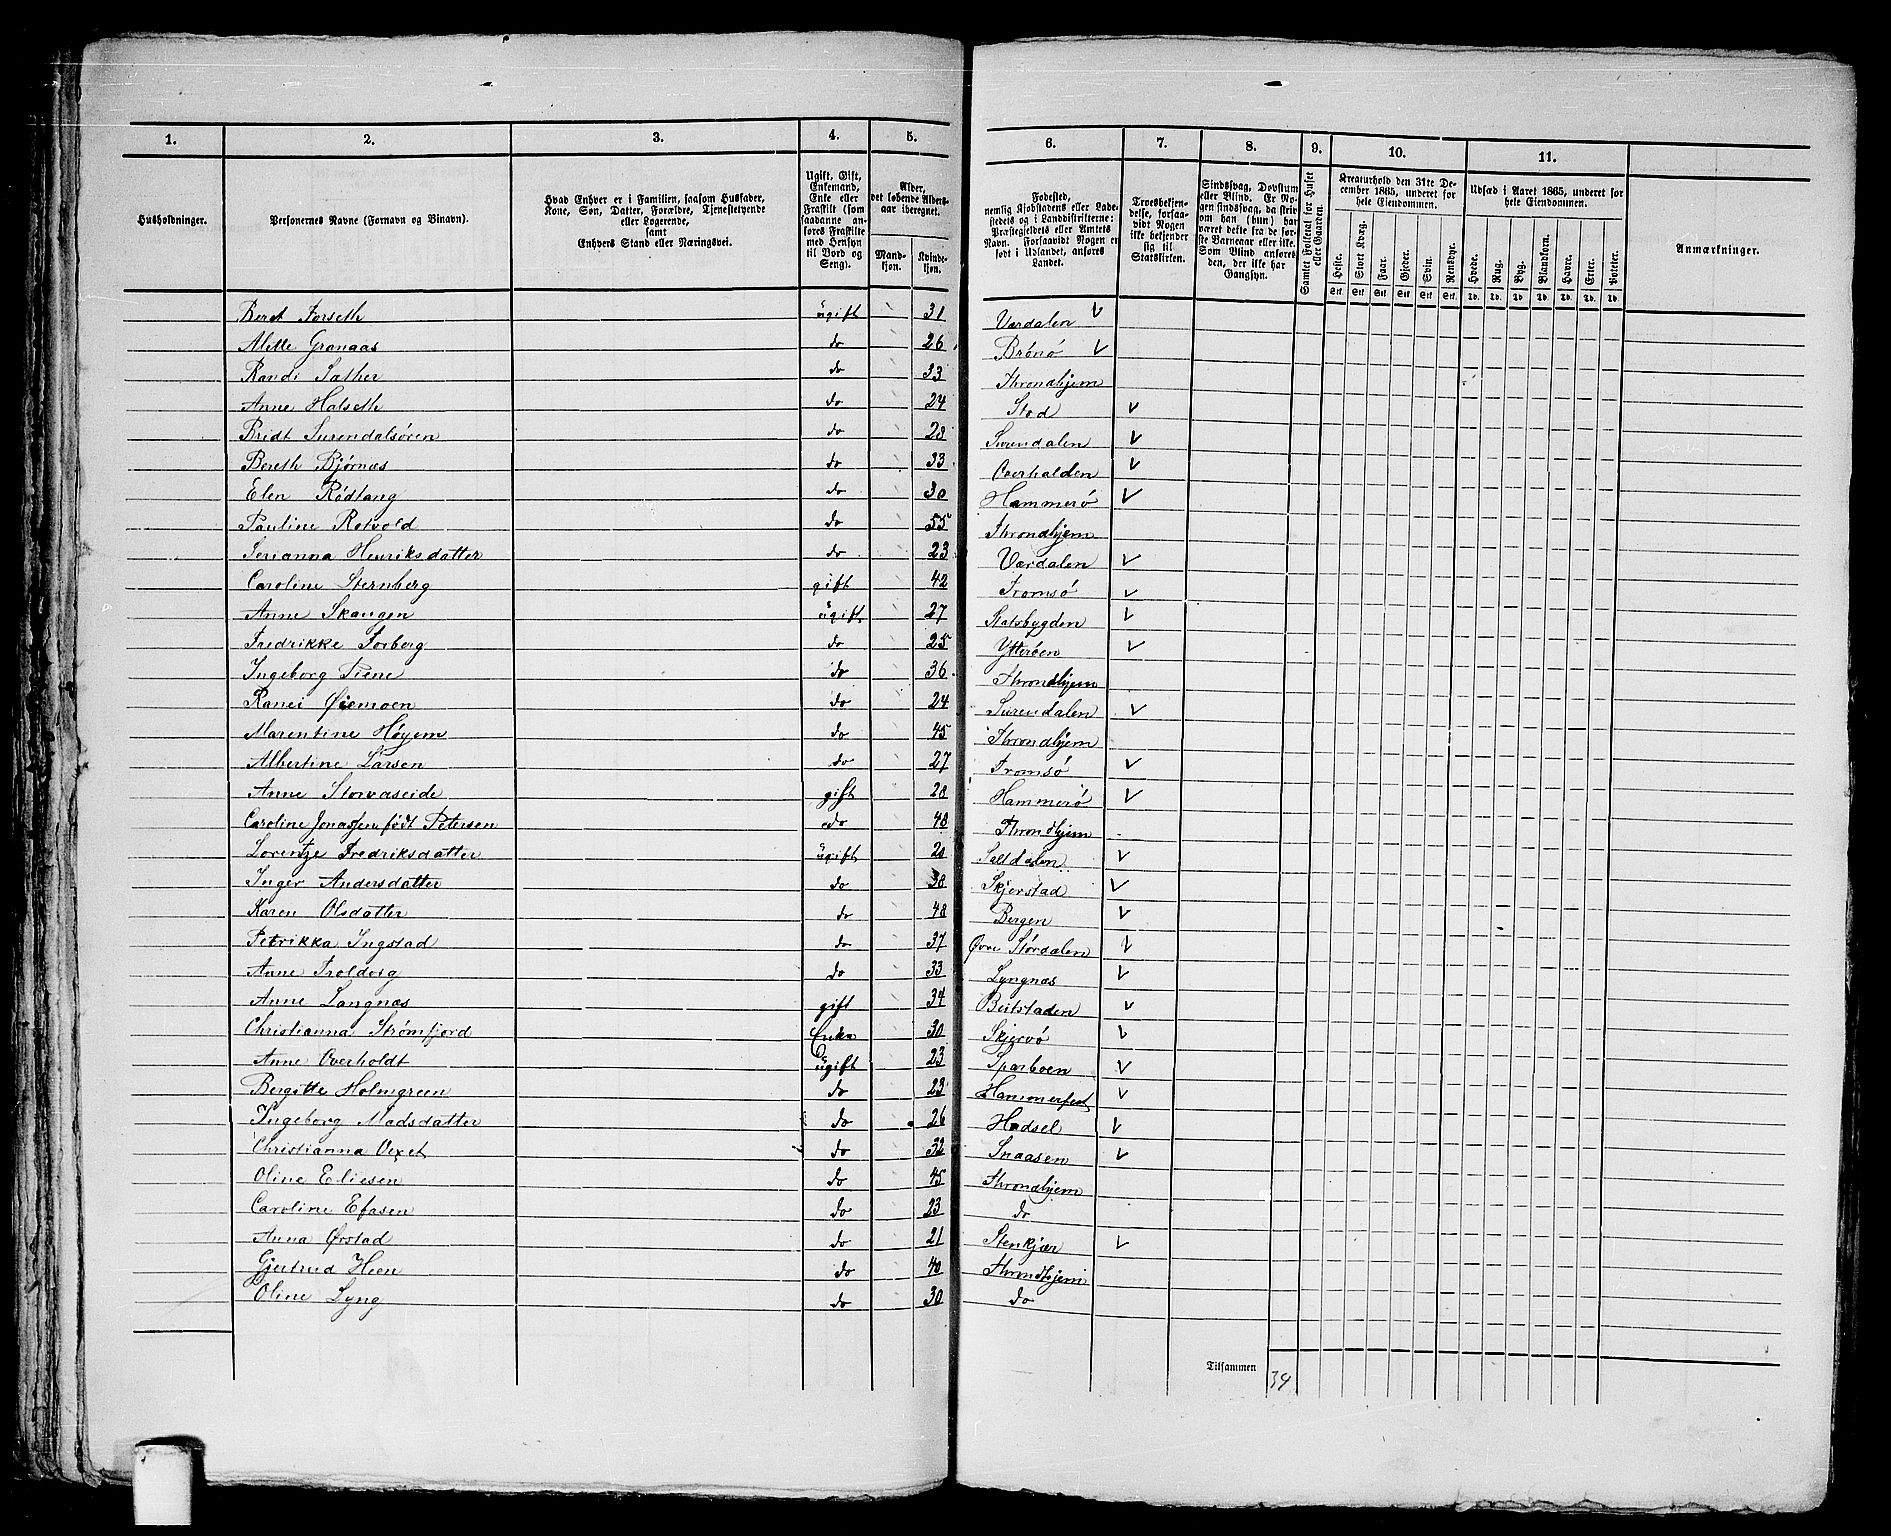 1. 2. 3. 4. 5. 6. 7. 8. 9. 10. 11.
Husholdninger.
Personernes Navne (Fornavn og Binavn).
Hvad Enhver er i Familien, saasom Husfader,
Kone, Søn, Datter, Forældre, Tjenestetyende
eller Logerende,
samt
Enhvers Stand eller Næringsvei.
Ugift, Gift,
Enkemand,
Enke eller
Fraskilt (som
saadanne an-
føres Fraskilte
med Hensyn
til Bord og
Seng).
Alder,
det løbende Alders-
aar iberegnet.
Mand-
kjøn.
Kvinde-
kjøn.
Fødested,
nemlig Kjøbstadens eller Lade-
stedets og i Landdistrikterne:
Præstegjeldets eller Amtets
Navn. Forsaavidt Nogen er
født i Udlandet, anføres
Landet.
Troesbekjen-
delse, forsaa-
vidt Nogen
ikke bekjender
sig til
Statskirken.
Sindssvag, Døvstum
eller Blind. Er No-
gen sindssvag, da skri-
ves om han (hun) har
været dette fra de før-
ste Barneaar eller ikke.
Som Blind anføres
den, der ikke har
Gangsyn.
Samlet Folketal for Huset
eller Gaarden.
Kreaturhold den 31te De-
cember 1865, underet for
hele Eiendommen.
Heste. Stort Kvæg. Faar. Gjeder. Svin. Rensdyr.
Stk. Stk. Stk. Stk. Stk. Stk.
Udsæd i Aaret 1865, underet for
hele Eiendommen.
Hvede. Rug. Byg. Blandkorn. Havre. Erter. Poteter.
Td. Td. Td. Td. Td. Td. Td.
Anmærkninger.
Beret Forseth ugift 31 Værdalen
Mette Grønaas do 26 Brönö
Randi Sæther do 33 Throndhjem
Anne Halseth do 24 Stod
Bridt Surendalsören do 28 Surendalen
Bereth Bjørnæs do 33 Overhalden
Elen Rödtang do 30 Hammerö
Pauline Rotvold do 55 Throndhjem
Serianna Henriksdatter do 23 Værdalen
Caroline Sternberg gift 42 Tromsö
Anne Skaugen ugift 27 Statsbygden
Fredrikke Forberg do 25 Ytteröen
Ingeborg Piene do 36 Throndhjem
Ranei Øiemoen do 24 Surendalen
Marentine Høyem do 45 Throndhjem
Albertine Larsen do 27 Tromsö
Anne Storvaseide gift 28 Hammerö
Caroline Jonassen födt Petersen do 48 Throndhjem
Lorentze Fredriksdatter ugift 20 Saltdalen
Inger Andersdatter do 38 Skjerstad
Karen Olsdatter do 48 Bergen
Petrikka Ingstad do 37 Øvre Størdalen
Anne Troldvig do 33 Lyngnæs
Anne Langnæs gift 34 Beitstaden
Christianna Strømfjord Enke 30 Skjervö
Anne Overholdt ugift 23 Sparboen
Bergitte Holmgreen do 23 Hammerfest
Ingeborg Madsdatter do 26 Hadsel
Christianna Vexet do 32 Snaasen
Oline Eliesen do 45 Throndhjem
Caroline Efasen do 23 do
Anna Ørstad do 21 Stenkjær
Gjertrud Hoen do 40 Throndhjem
Oline Lyng do 30 do
Tilsammen 34